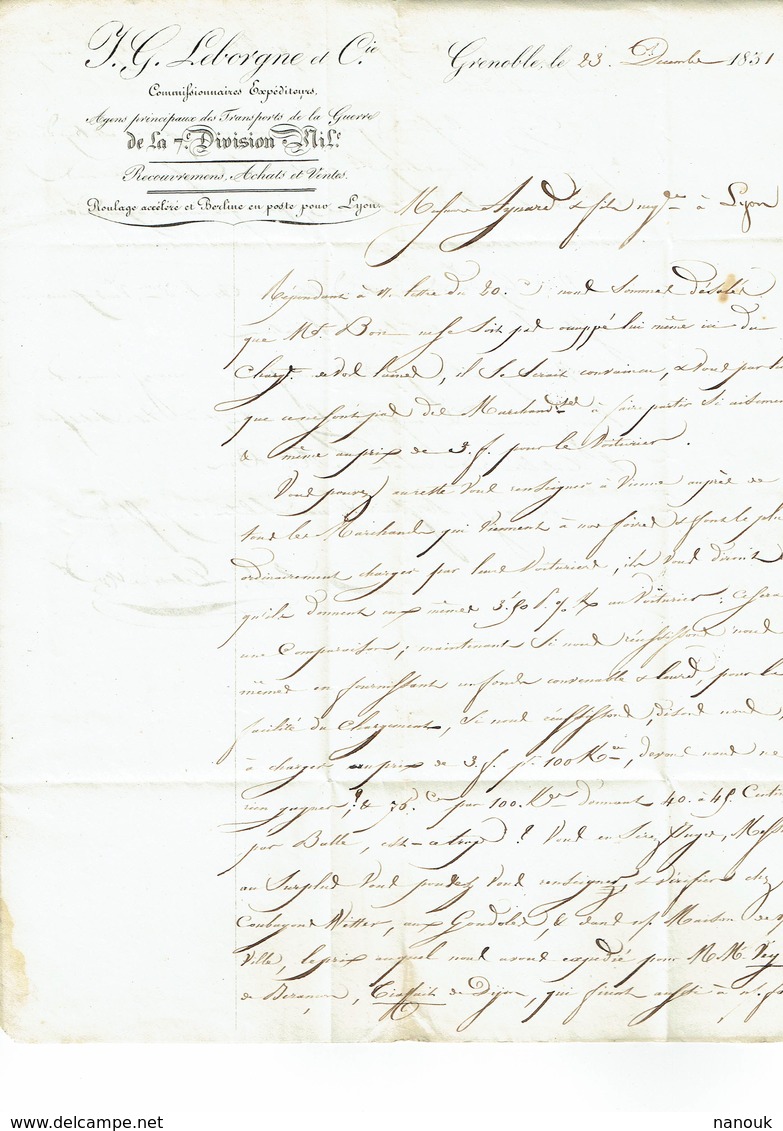 J. G. Leborgne et C.ie
Commissionnaires Expéditeurs,
Agens principaux des Transports de la Guerre
de la 7.e Division Mil.e
Recouvremens, Achats et Ventes.
Roulage accéléré et Berline en poste pour Lyon
Grenoble, le 23 Decembre 1831
Messieurs Aynard & fils neg.ts à Lyon
Répondant à V. lettre du 20 nous sommes désolés
que Mr. Bon ne se soit pas occuppé lui même ici du
Charg.t de vos laines, il se serait convaincu, & vous par lui
que ce ne sont pas des Marchand.ses à faire partir si aisément
& même au prix de 3 f. pour le Voiturier.
Vous pouvez au reste vous renseigner à Vienne auprès de
tous les Marchands qui viennent à nos foires & font le plus
ordinairement charger par leurs Voituriers, ils vous diront
qu'ils donnent eux mêmes 3.50 au Voiturier : ce sera
une Comparaison ; maintenant si nous réussissons nous
mêmes en fournissant un fonds convenable & lourd, pour la
facilité du Chargement, si nous réussissons, disons nous
à charger au prix de 3 f. p. 100 K.os, devons nous ne
rien gagner ? & 75 C.es par 100 K.os donnant 40 à 45 Cent
par Balle, est-ce trop ? Vous en serez Juges, Mess
au surplus vous pouvez vous renseigner, & vérifier chez
Coubayon Witter, aux Gondoles, & dans n/. Maison de v/
Ville, le prix auquel nous avons expédié pour M M. Véy
de Besançon, de Dijon, qui